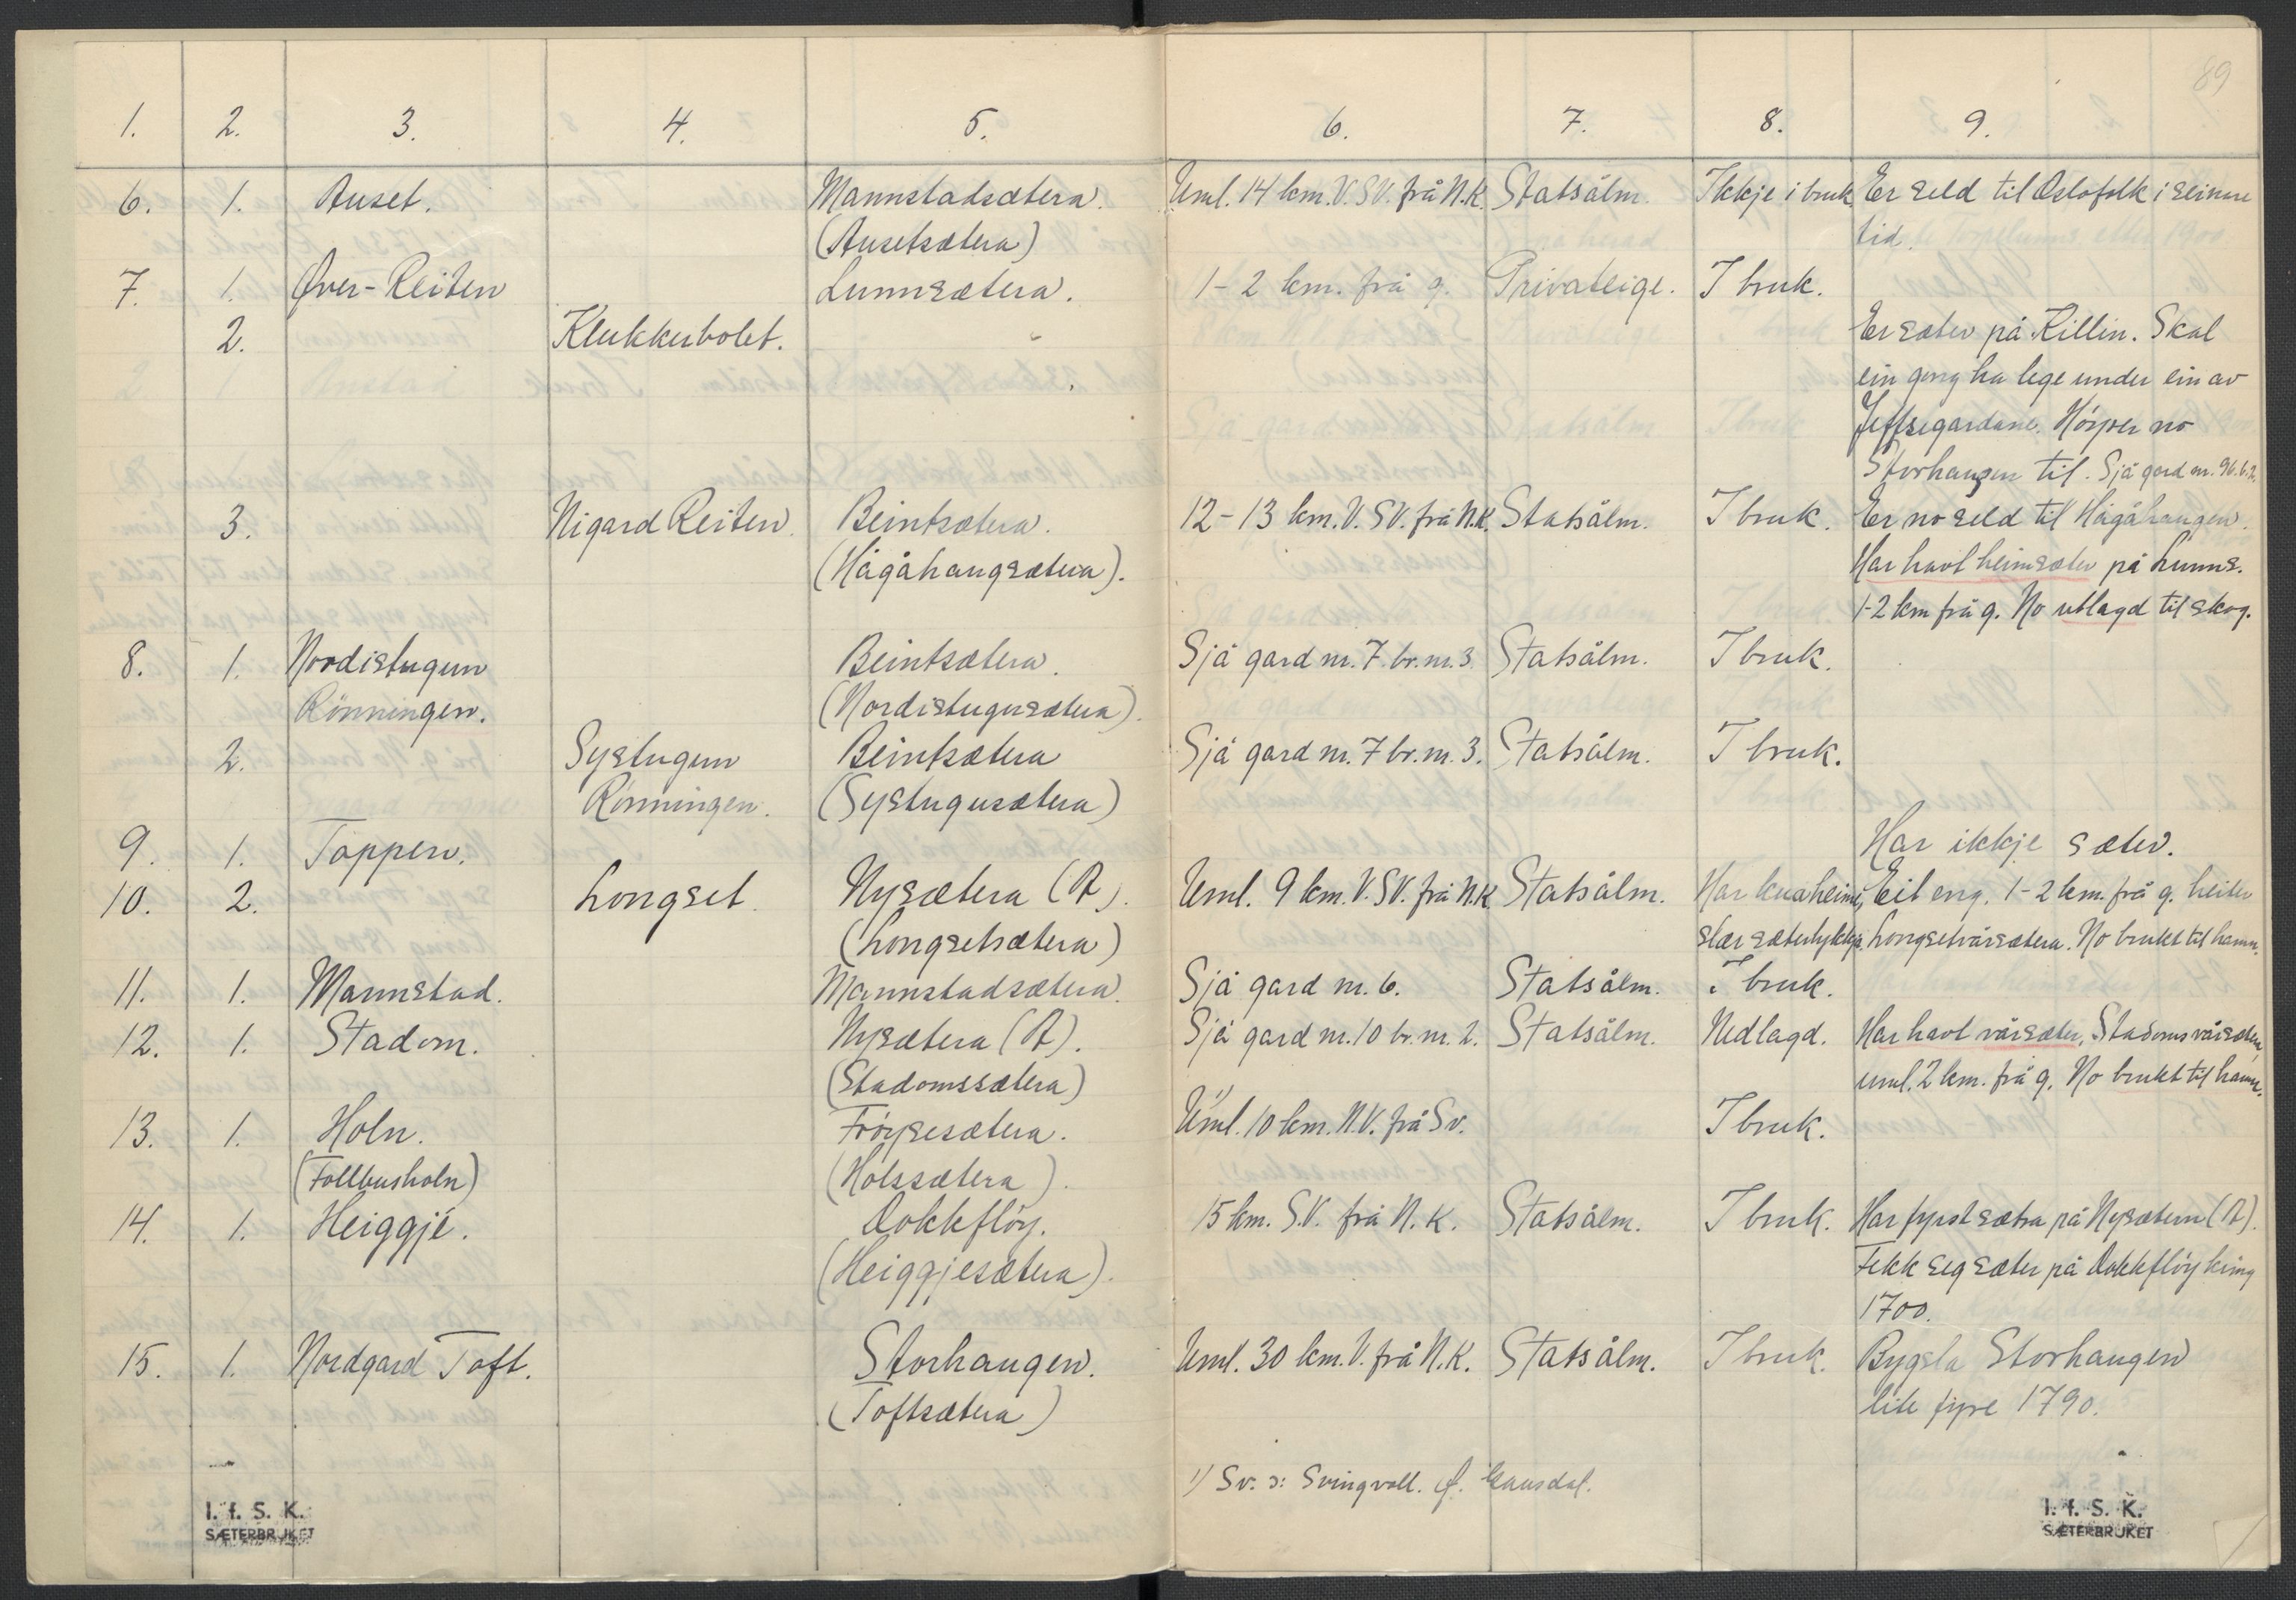 89
1. 2. 3. 4. 5. 6. 7. 8. 9.
6. 1. Auset. Mannstadsætera. Uml. 14 km. V. SV. frå N.K. Statsålm. Ikkje i bruk. Er seld til Oslofolk i seinare
(Ausetsætera) tid.
7. 1. Øver-Reiten Lunnsætera. 1-2 km. frå g. Privateige. I bruk.
2. Klukkerbolet. Er sæter på Killin. Skal
ein gong ha lege under ein av
Jeffsegardane. Höyrer no
Storhaugen til. Sjå gard nr. 96. b. 2.
3. Nigard Reiten. Beintsætera. 12-13 km. V. SV. frå N.K. Statsålm. I bruk. Er no seld til Hågåhaugen.
(Hågåhaugsætera). Har havt heimsæter på Lunns.
1-2 km frå g. No utlagd til skog.
8. 1. Nordistugun Beintsætera. Sjå gard nr. 7. br. nr. 3. Statsålm. I bruk.
Rönningen. (Nordistugusætera).
2. Systugun Beintsætera Sjå gard nr. 7 br. nr. 3. Statsålm. I bruk.
Rönningen. (Systugusætera)
9. 1. Toppen. Har ikkje sæter.
10. 2. Longset. Nysætera (A). Uml. 9 km. V. SV. frå N.K. Statsålm. Har kua heime, Eit eng. 1-2 km. frå g. heiter
(Longsetsætera) slær sæterlykkja. Longsetvårsætera. No brukt til hamn.
11. 1. Mannstad. Mannstadsætera. Sjå gard nr. 6. Statsålm. i bruk.
12. 1. Stadom. Nysætera (A). Sjå gard nr. 10 br. nr. 2. Statsålm. Nedlagd. Har havt vårsæter, Stadomsvårsætera,
(Stadomssætera) uml. 2 km. frå g. No brukt til hamn.
13. 1. Holn. Fröysesætera. Uml. 10 km. N.V. frå Sv. 1) I bruk.
(Follbusholn) (Holssætera).
14. 1. Heiggjé. Dokkflöy. 15 km. S.V. frå N.K. Statsålm. I bruk. Har fyrst sætra på Nysætern (A).
(Heiggjesætera). Fekk seg sæter på Dokkflöy kring
1700.
15. 1. Nordgard Toft. Storhaugen. Uml. 30 km. V. frå N.K. Statsålm. I bruk. Bygsla Storhaugen
(Toftsætera) lite fyre 1790.
1) Sv. ɔ: Svingvoll. Ø. Gausdal.
I. f. S. K. I. f. S. K.
SÆTERBRUKET SÆTERBRUKET